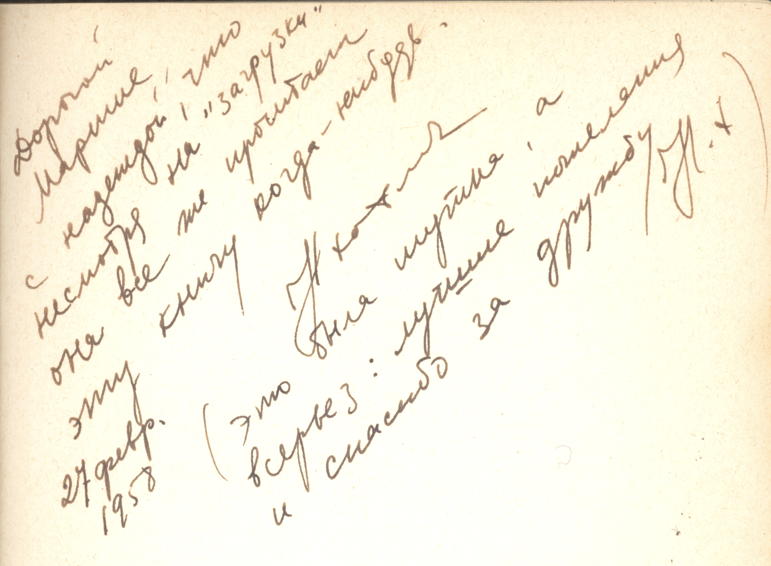 Дорогой
Марише,
с надеждой, что
несмотря на „загрузки“
она все же прочитает
эту книгу когда-нибудь.
27 февр.
1958
(это была шутка, а
всерьез: лучшие пожелания
и спасибо за дружбу